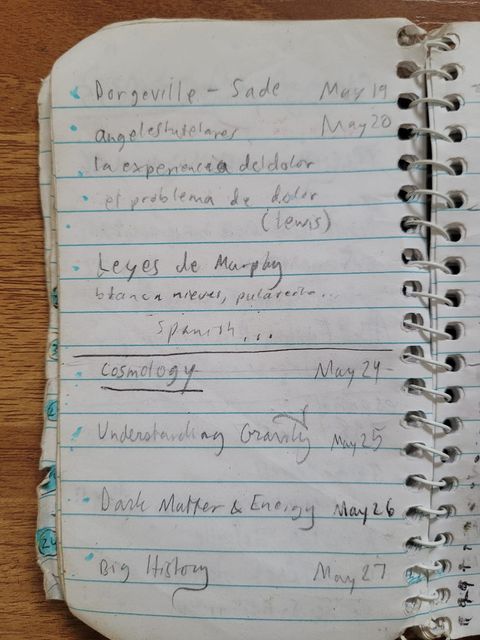 Dorgeville - Sade May 19
angelestutelares May 20
la experiencia del dolor
el problema de dolor
(Lewis)
Leyes de Murphy
blanca nieves, pulgarcito...
Spanish...
Cosmology May 24
Understanding Gravity May 25
Dark Matter & Energy May 26
Big History May 27